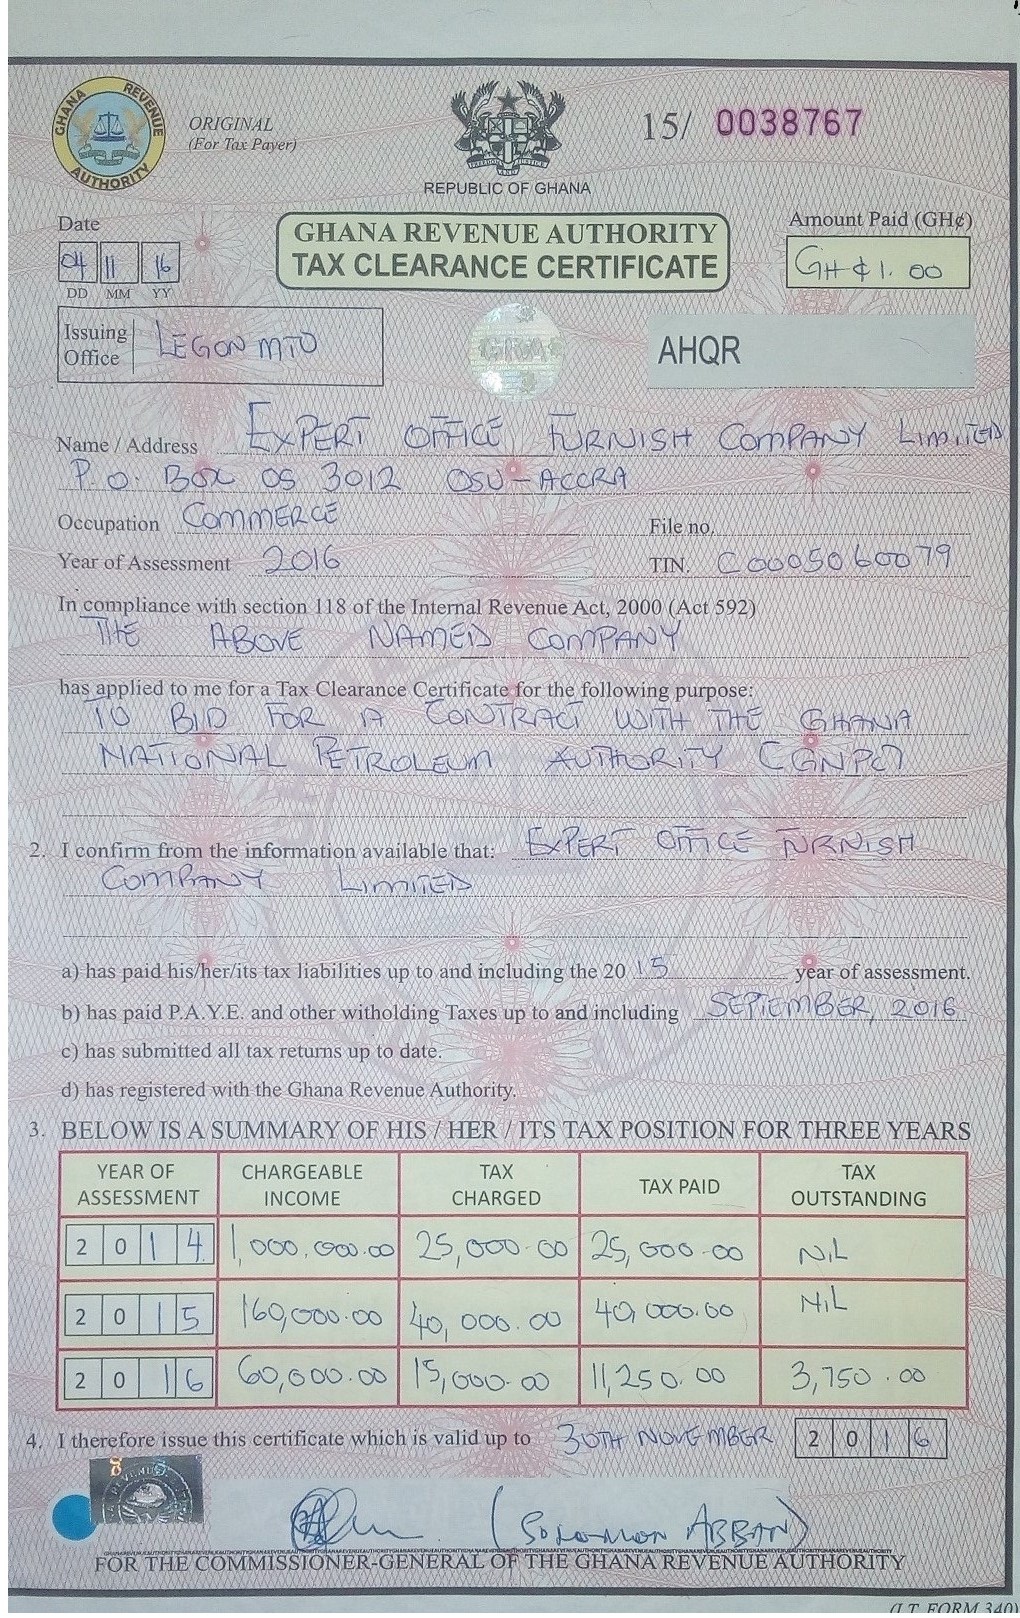 GHANA REVENUE AUTHORITY
ORIGINAL
(For Tax Payer)
FREEDOM AND JUSTICE
REPUBLIC OF GHANA
15/ 0038767
Date
04 11 16
DD MM YY
GHANA REVENUE AUTHORITY
TAX CLEARANCE CERTIFICATE
Amount Paid (GH¢)
GH¢1.00
Issuing Office LEGON MTO
GRA
AHQR
Name / Address EXPERT OFFICE FURNISH COMPANY LIMITED
P.O. BOX OS 3012 OSU-ACCRA
Occupation COMMERCE File no.
Year of Assessment 2016 TIN. C0005060079
In compliance with section 118 of the Internal Revenue Act, 2000 (Act 592)
THE ABOVE NAMED COMPANY
has applied to me for a Tax Clearance Certificate for the following purpose:
TO BID FOR A CONTRACT WITH THE GHANA
NATIONAL PETROLEUM AUTHORITY (GNPC)
2. I confirm from the information available that: EXPERT OFFICE FURNISH
COMPANY LIMITED
a) has paid his/her/its tax liabilities up to and including the 20 15 year of assessment.
b) has paid P.A.Y.E. and other witholding Taxes up to and including SEPTEMBER, 2016
c) has submitted all tax returns up to date.
d) has registered with the Ghana Revenue Authority.
3. BELOW IS A SUMMARY OF HIS / HER / ITS TAX POSITION FOR THREE YEARS
YEAR OF ASSESSMENT CHARGEABLE INCOME TAX CHARGED TAX PAID TAX OUTSTANDING
2014 1,000,000.00 25,000.00 25,000.00 NIL
2015 160,000.00 40,000.00 40,000.00 NIL
2016 60,000.00 15,000.00 11,250.00 3,750.00
4. I therefore issue this certificate which is valid up to 30TH NOVEMBER 2016
(SOLOMON ABBAN)
FOR THE COMMISSIONER-GENERAL OF THE GHANA REVENUE AUTHORITY
(I.T. FORM 340)